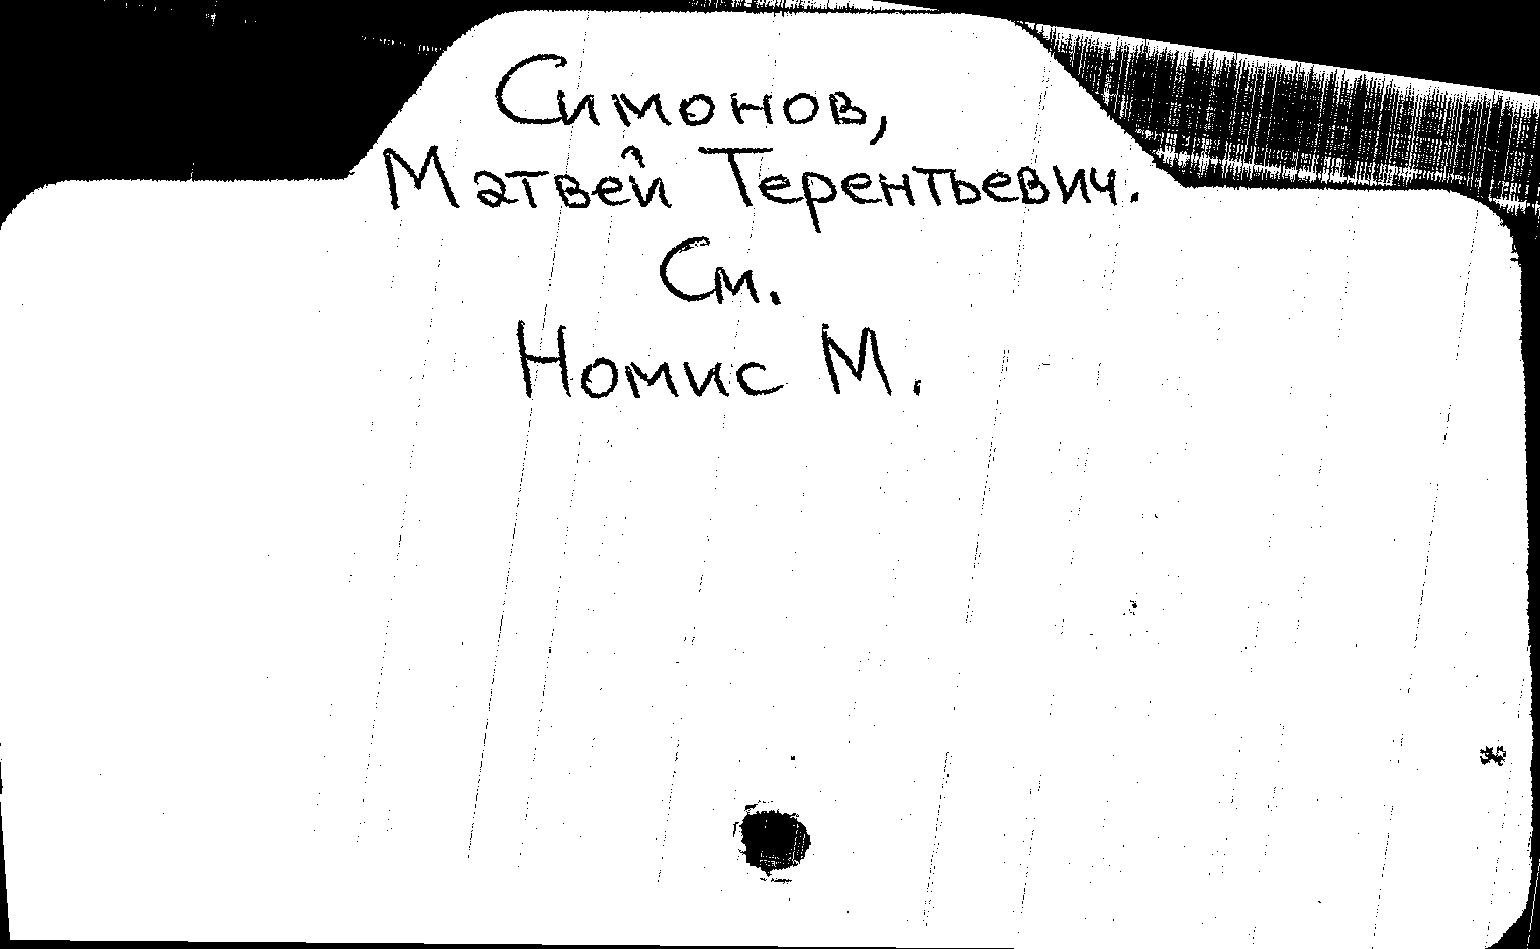 Симонов,
Матвей Терентьевич.
См.
Номис М.